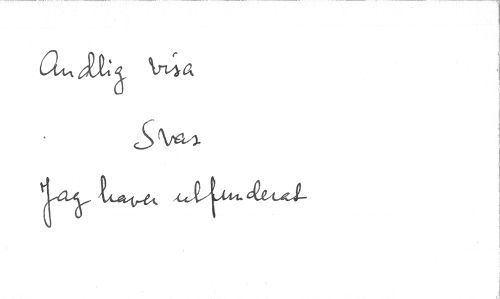 Andlig visa
Svar
Jag haver utfunderat